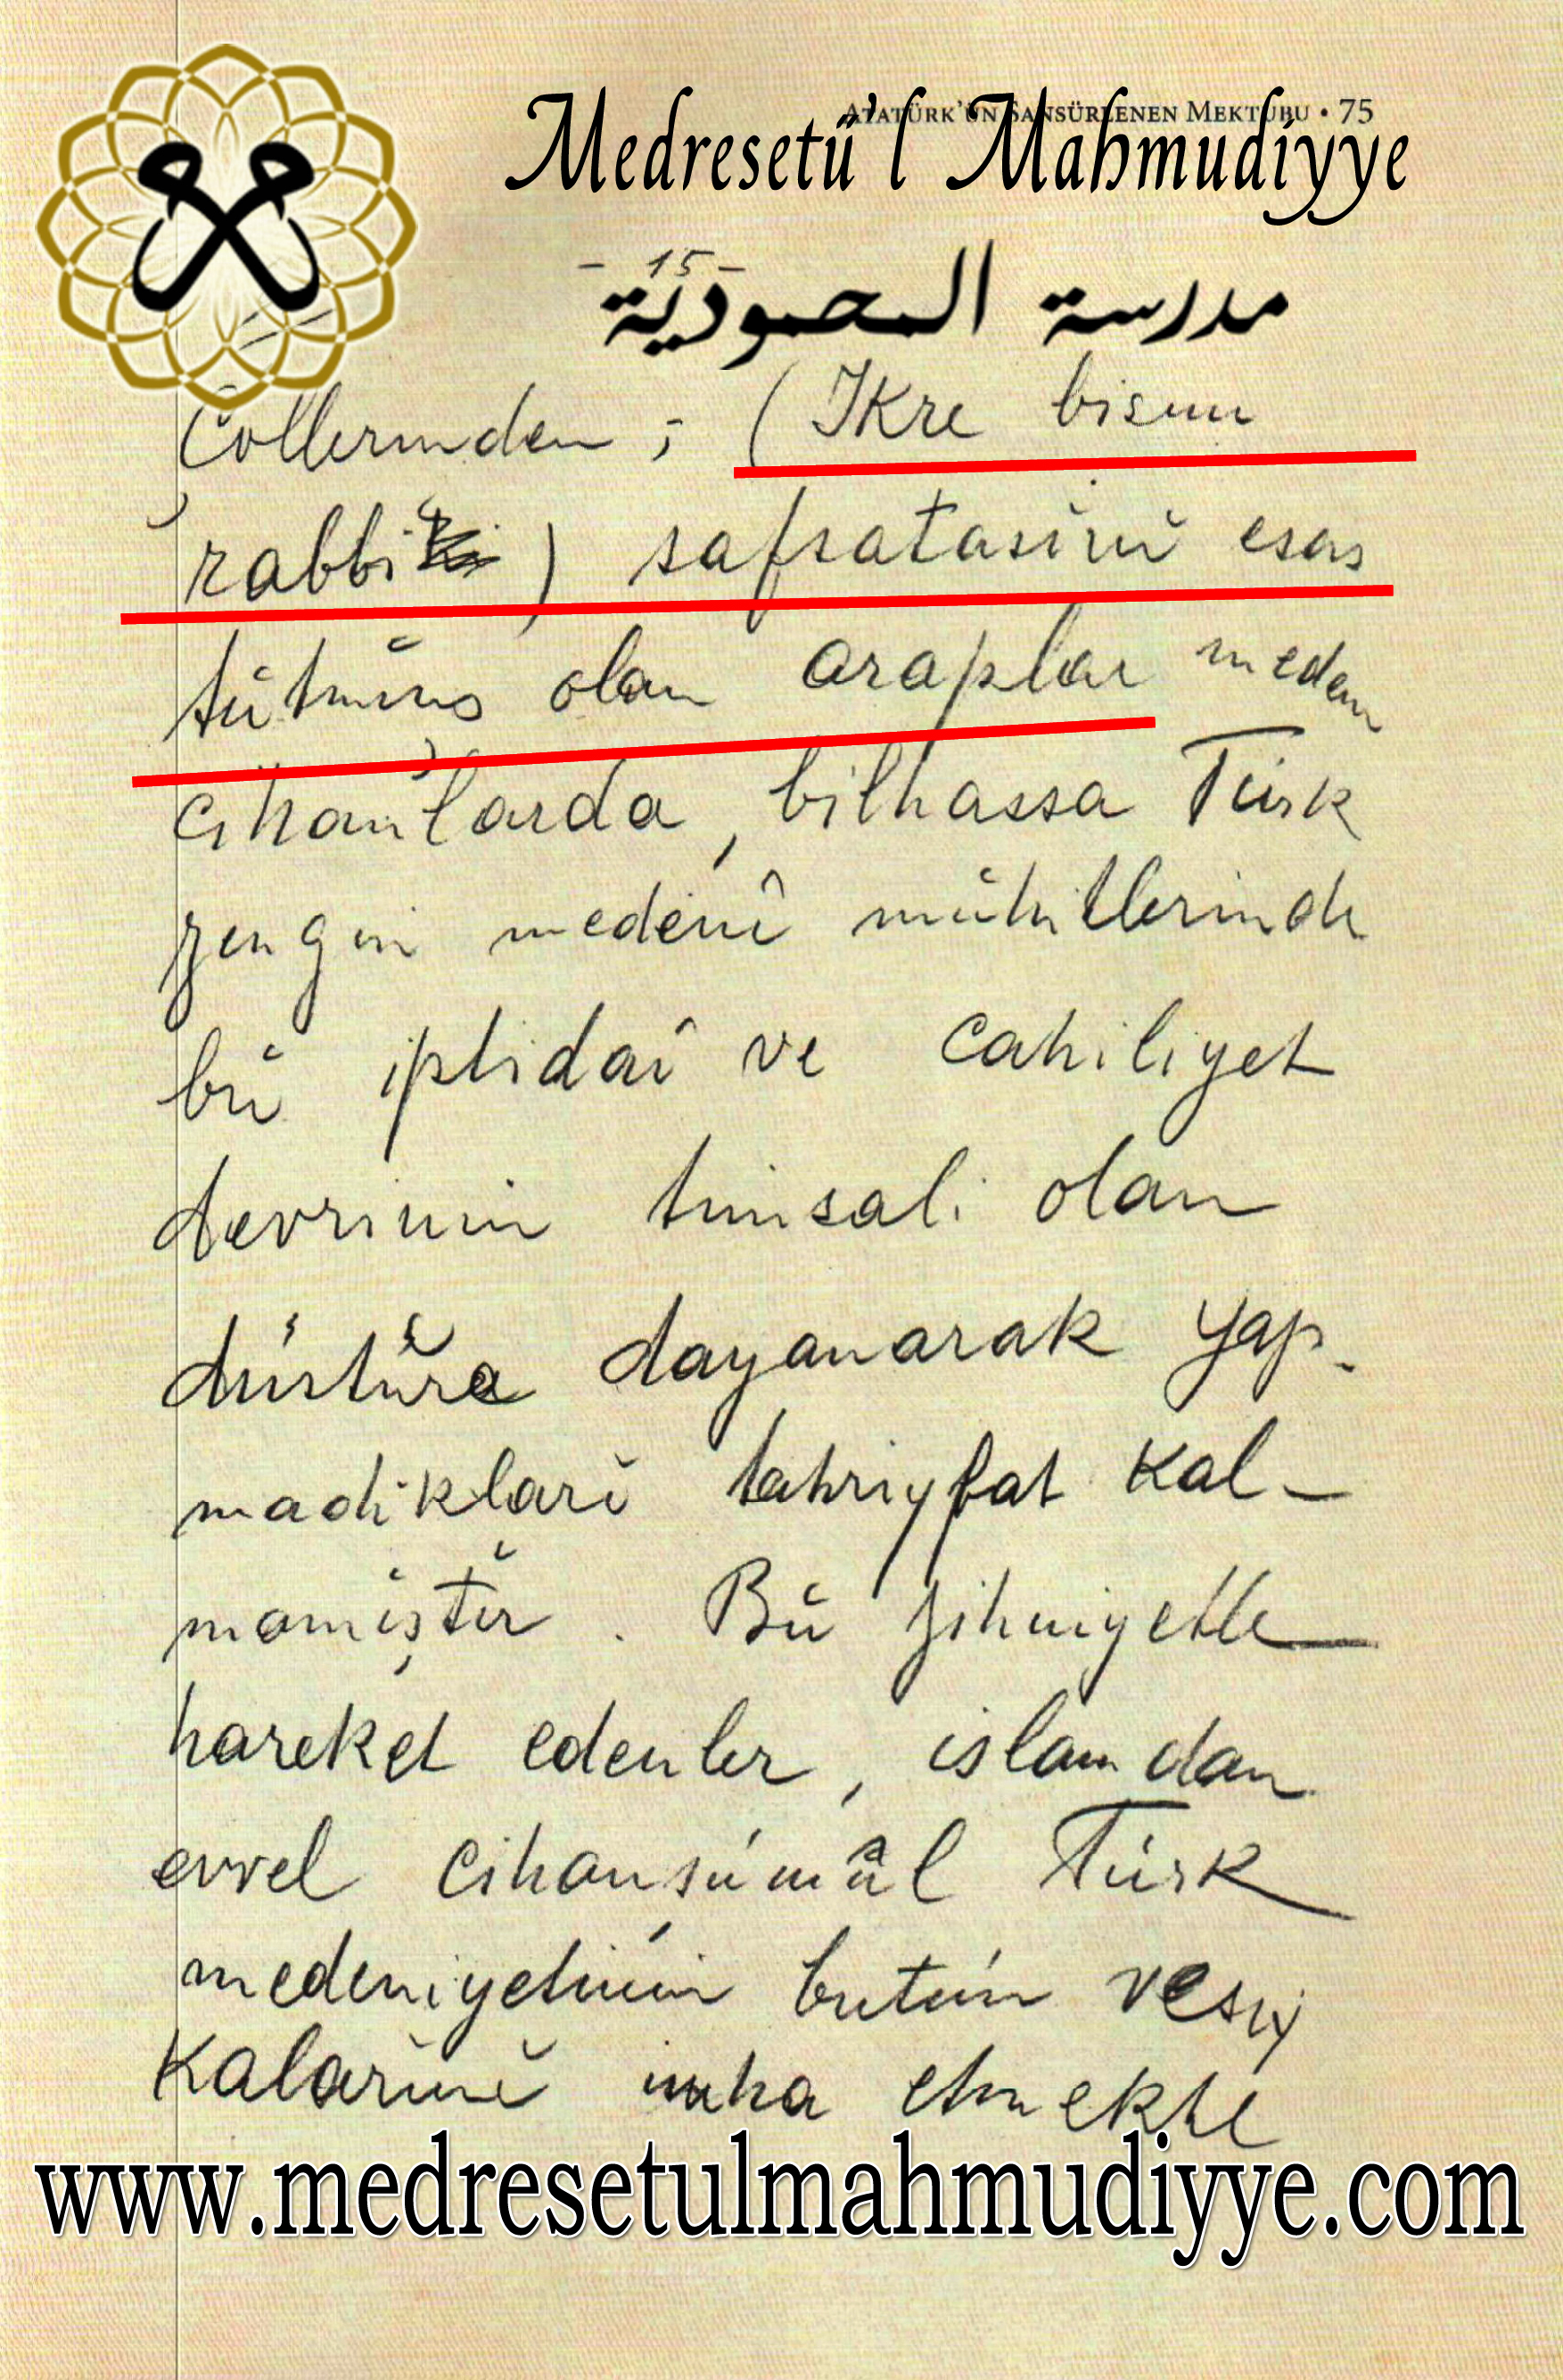 ATATÜRK'ÜN SANSÜRLENEN MEKTUBU • 75
Medresetü'l Mahmudiyye
- 15 -
مدرسة المحموديّة
Çöllerinden ; (Ikre bismi
rabbi ) safsatasini esas
tutmuş olan araplar meden
cihanlarda, bilhassa Türk
zengin medenî mühitlerinde
bu iptidaî ve cahiliyet
devrinin timsali olan
düstüra dayanarak yap-
madiklari tahriyfat kal-
mamiştir . Bu zihniyetle
hareket edenler, islamdan
evvel cihanşümül Türk
medeniyetinin bütün vesiy
kalarini imha etmekte
www.medresetulmahmudiyye.com